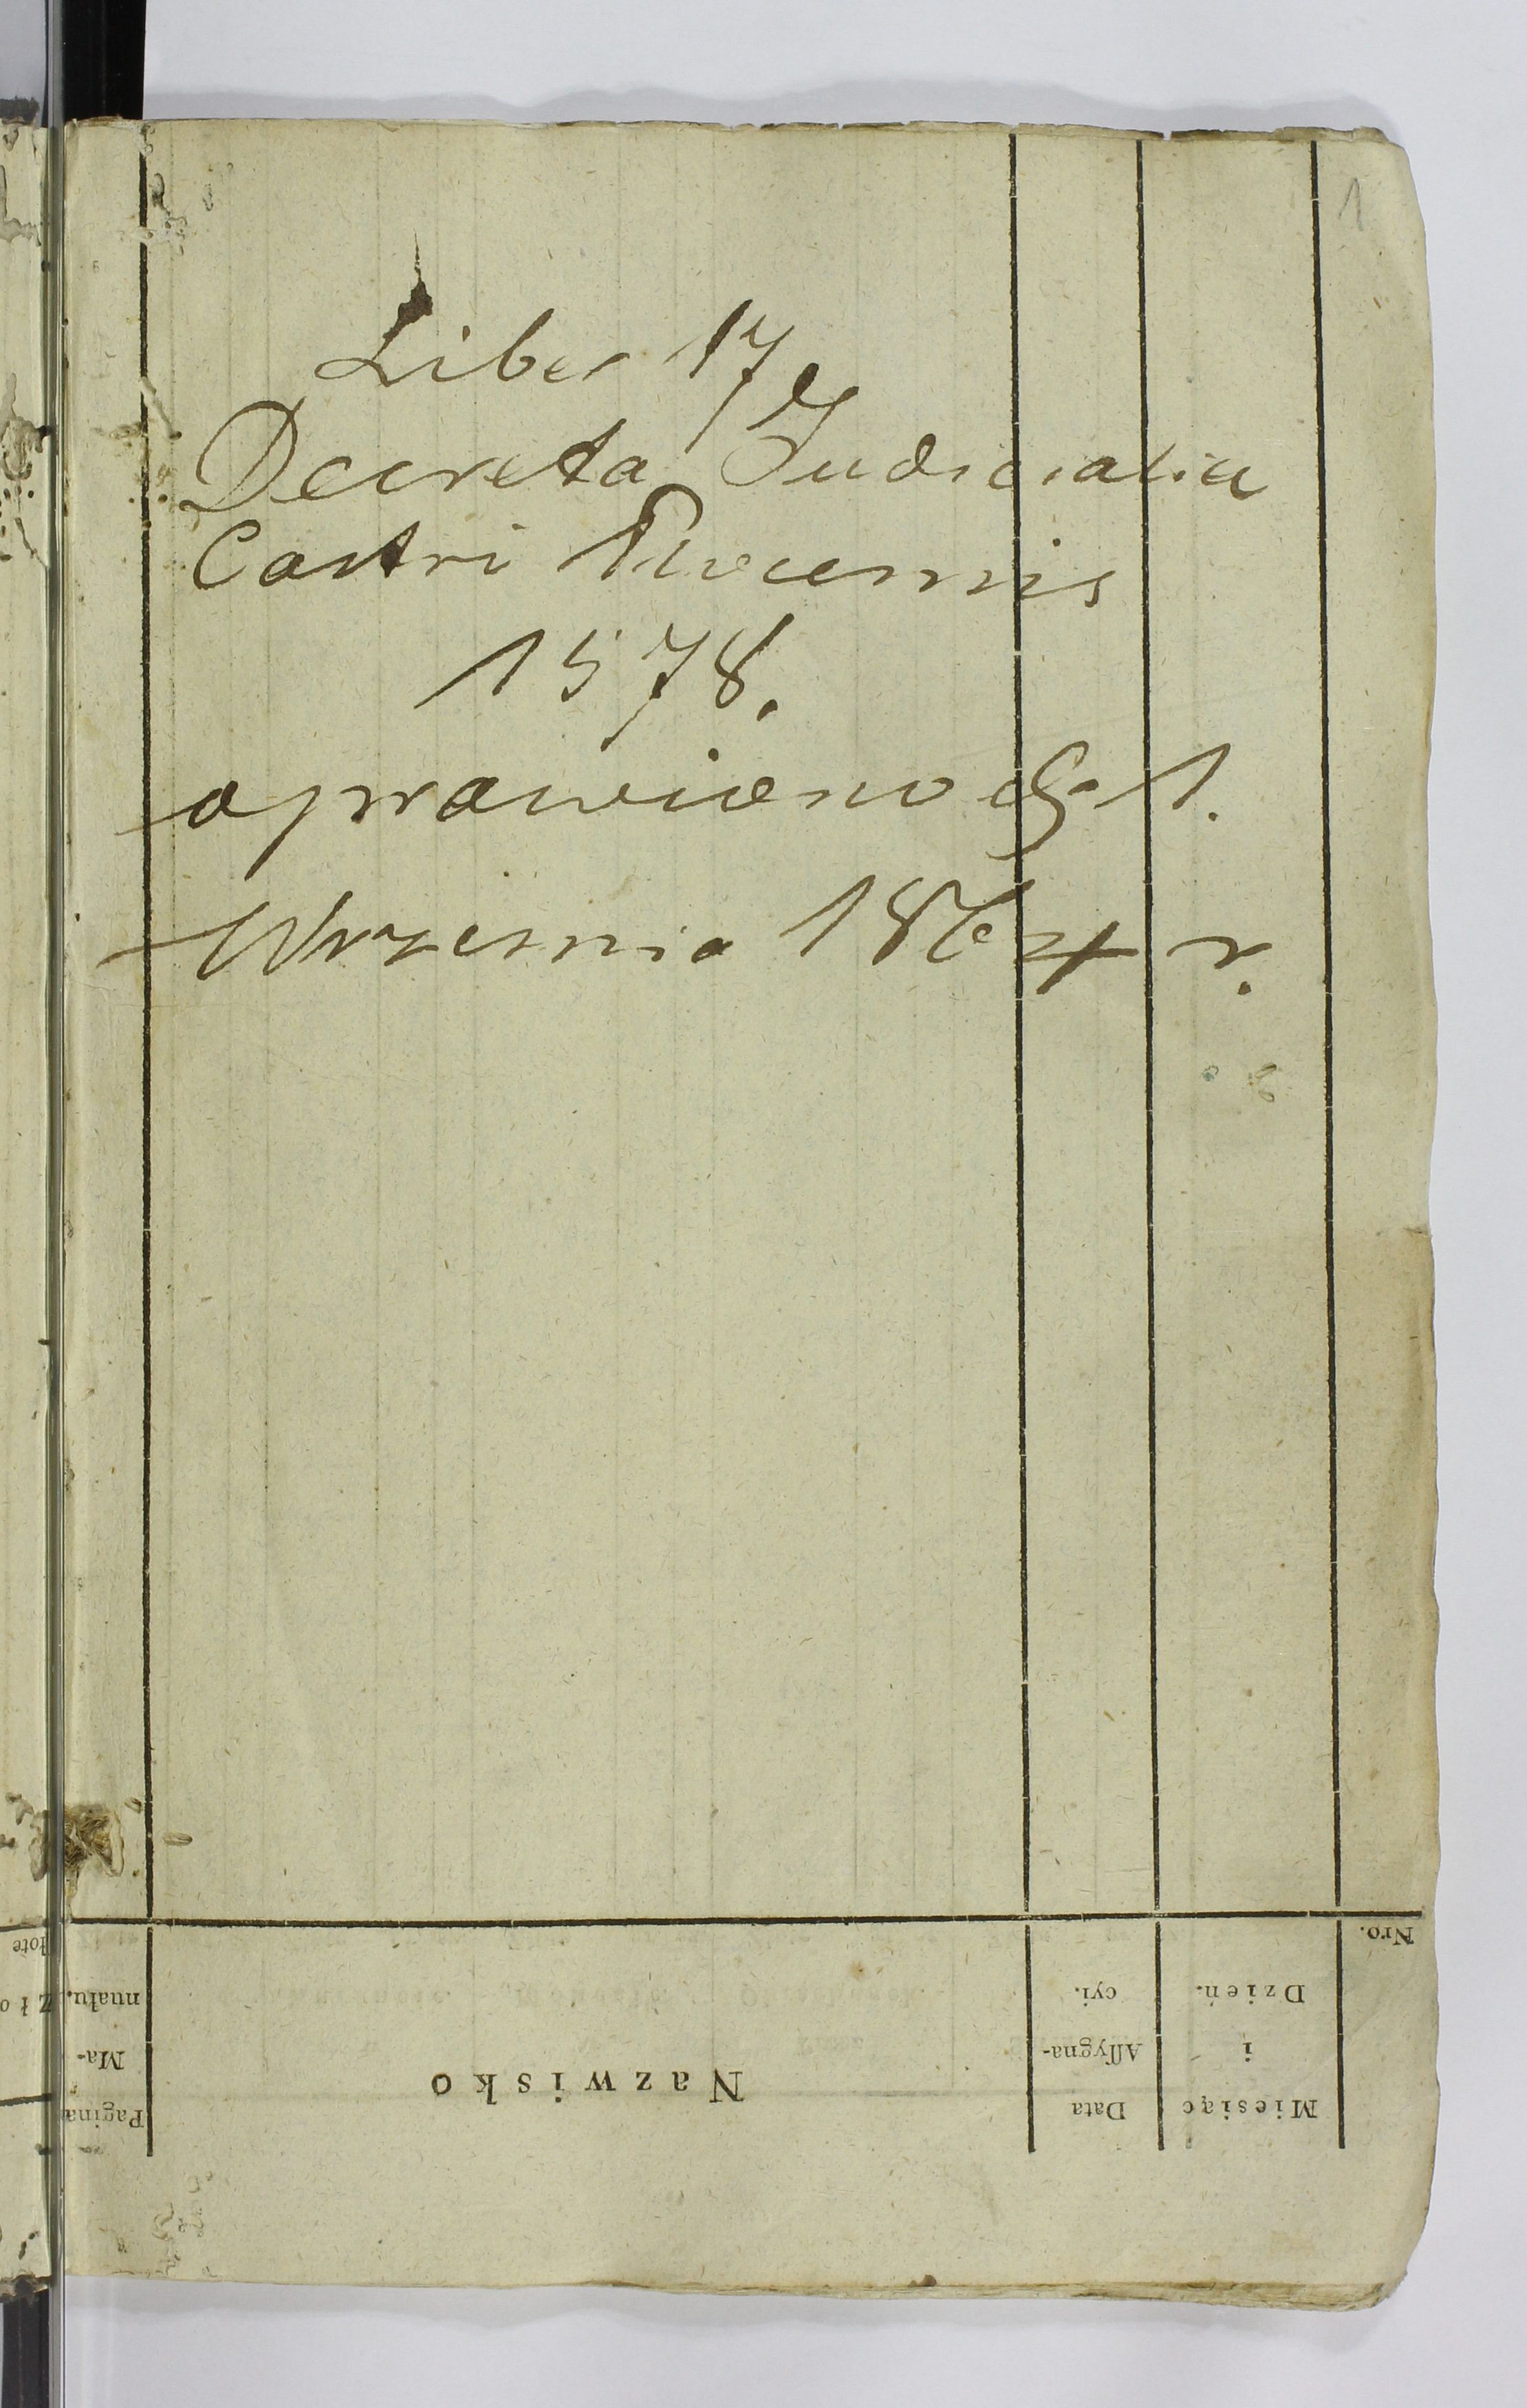 1
Liber 17
Decreta Judicialia
Castri
1578.
oprawiono d. 1.
Wrzesnia 1864 r.
Nro.
Miesiąc
i
Dzień.
Data
Assygna-
cyi.
Nazwisko
Pagina
Ma-
nuału.